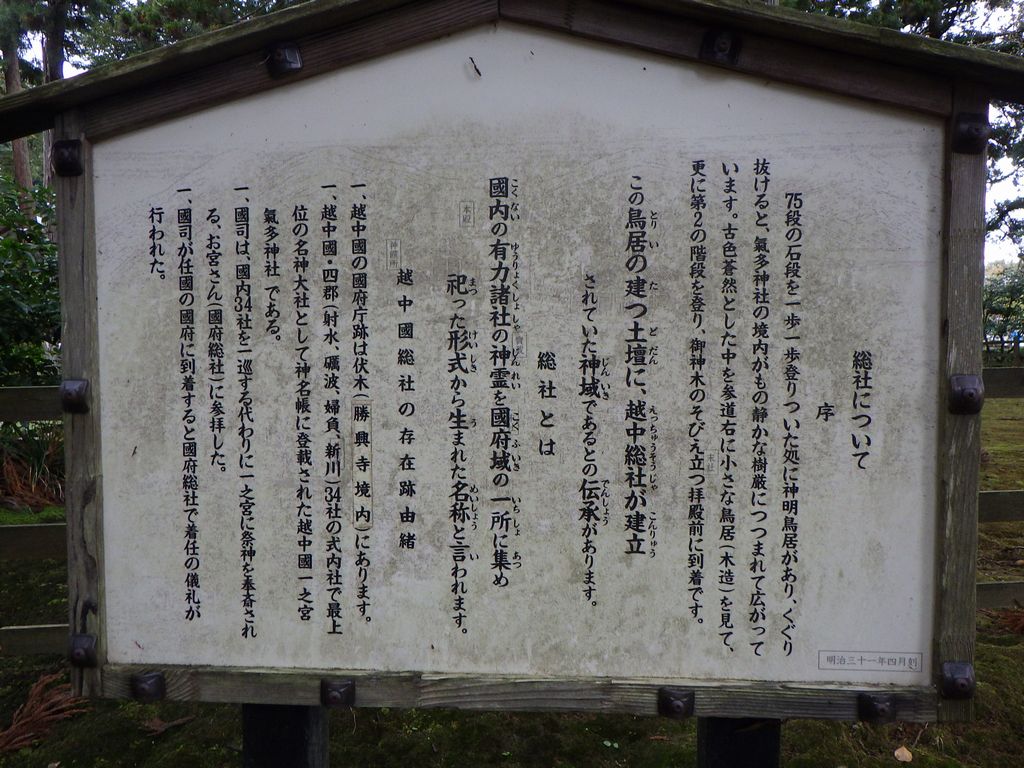 総社について
序
75段の石段を一歩一歩登りついた処に神明鳥居があり、くぐり
抜けると、氣多神社の境内がもの静かな樹厳につつまれて広がって
います。古色蒼然とした中を参道右に小さな鳥居(木造)を見て、
更に第2の階段を登り、御神木のそびえ立つ拝殿前に到着です。
この鳥居の建つ土壇に、越中総社が建立
されていた神域であるとの伝承があります。
総社とは
國内の有力諸社の神霊を國府域の一所に集め
祀った形式から生まれた名称と言われます。
越中國総社の存在跡由緒
一、越中國の國府庁跡は伏木(勝興寺境内)にあります。
一、越中國・四郡(射水、礪波、婦負、新川)34社の式内社で最上
位の名神大社として神名帳に登載された越中國一之宮
氣多神社 である。
一、國司は、國内34社を一巡する代わりに一之宮に祭神を奉斎され
る、お宮さん(國府総社)に参拝した。
一、國司が任國の國府に到着すると國府総社で着任の儀礼が
行われた。
明治三十一年四月